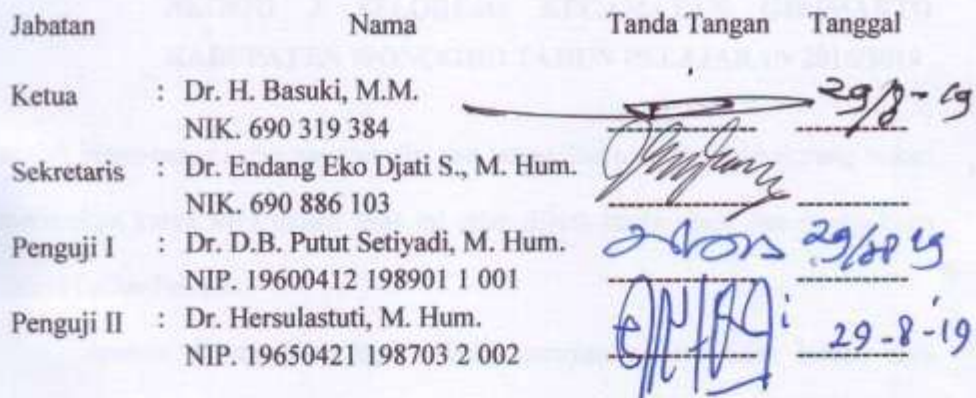 Jabatan Nama Tanda Tangan Tanggal
Ketua : Dr. H. Basuki, M.M. 29/8-19
NIK. 690 319 384
Sekretaris : Dr. Endang Eko Djati S., M. Hum.
NIK. 690 886 103
Penguji I : Dr. D.B. Putut Setiyadi, M. Hum. 29/08 19
NIP. 19600412 198901 1 001
Penguji II : Dr. Hersulastuti, M. Hum. 29-8-19
NIP. 19650421 198703 2 002